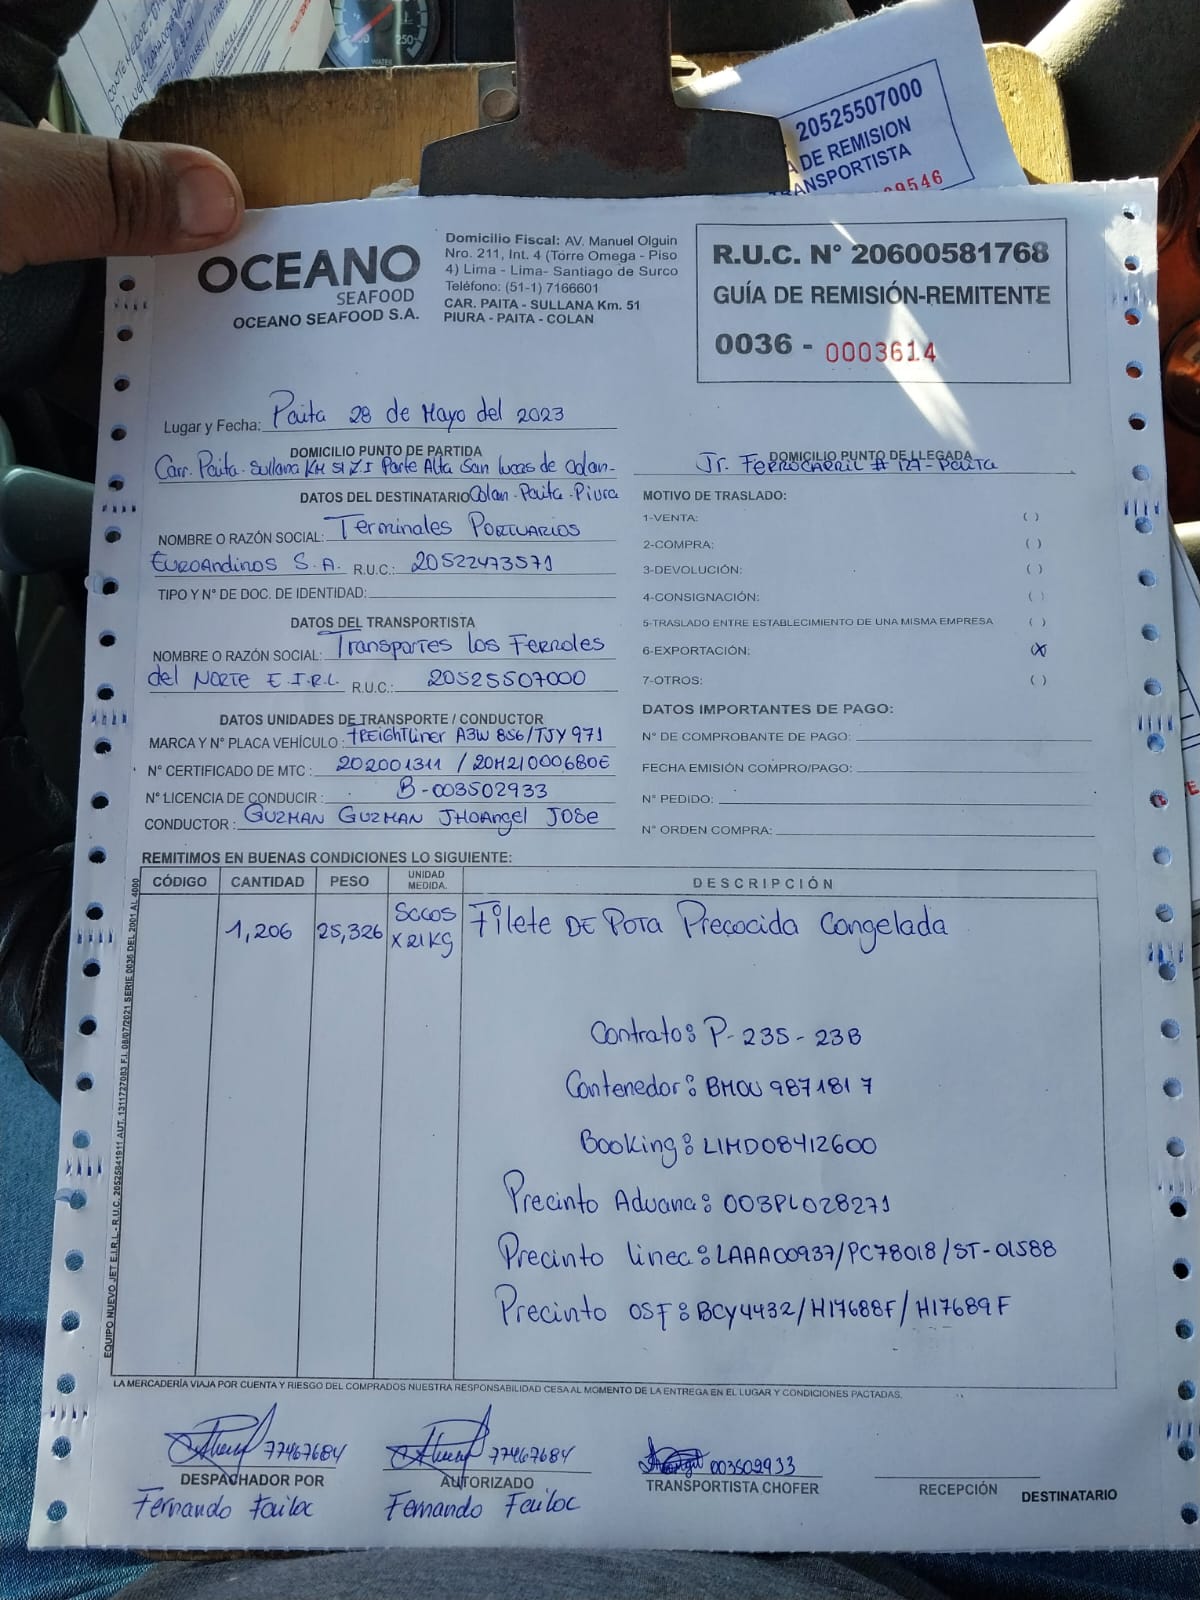 20525507000
DE REMISION
ANSPORTISTA
9546
250
WATER
OCEANO
SEAFOOD
OCEANO SEAFOOD S.A.
Domicilio Fiscal: AV. Manuel Olguin
Nro. 211, Int. 4 (Torre Omega - Piso
4) Lima - Lima- Santiago de Surco
Teléfono: (51-1) 7166601
CAR. PAITA - SULLANA Km. 51
PIURA - PAITA - COLAN
R.U.C. N° 20600581768
GUÍA DE REMISIÓN-REMITENTE
0036 - 0003614
Lugar y Fecha: Paita 28 de Mayo del 2023
DOMICILIO PUNTO DE PARTIDA
Carr. Paita - Sullana KM 51 Z.I Parte Alta San Lucas de Colan-
DATOS DEL DESTINATARIO Colan - Paita - Piura
NOMBRE O RAZÓN SOCIAL: Terminales Portuarios
EuroAndinos S.A. R.U.C.: 20522473571
TIPO Y N° DE DOC. DE IDENTIDAD:
DATOS DEL TRANSPORTISTA
NOMBRE O RAZÓN SOCIAL: Transportes los Ferroles
del Norte E.I.R.L. R.U.C.: 20525507000
DATOS UNIDADES DE TRANSPORTE / CONDUCTOR
MARCA Y N° PLACA VEHÍCULO: Freightliner A3W 856/TJY 971
N° CERTIFICADO DE MTC: 202001311 / 20M21000680E
N° LICENCIA DE CONDUCIR: B-003502933
CONDUCTOR: Guzman Guzman Jhoangel Jose
DOMICILIO PUNTO DE LLEGADA
Jr. Ferrocarril # 127 - Paita
MOTIVO DE TRASLADO:
1-VENTA: ( )
2-COMPRA: ( )
3-DEVOLUCIÓN: ( )
4-CONSIGNACIÓN: ( )
5-TRASLADO ENTRE ESTABLECIMIENTO DE UNA MISMA EMPRESA ( )
6-EXPORTACIÓN: (X)
7-OTROS: ( )
DATOS IMPORTANTES DE PAGO:
N° DE COMPROBANTE DE PAGO:
FECHA EMISIÓN COMPRO/PAGO:
N° PEDIDO:
N° ORDEN COMPRA:
REMITIMOS EN BUENAS CONDICIONES LO SIGUIENTE:
CÓDIGO CANTIDAD PESO UNIDAD MEDIDA. DESCRIPCIÓN
1,206 25,326 Sacos x 21 KG Filete de Pota Precocida Congelada
Contrato: P-235-23B
Contenedor: BMOU 987181 7
Booking: LIMD08412600
Precinto Aduana: 003PL028271
Precinto linea: LAAA00937/PC78018/ST-01588
Precinto OSF: BCY4432/H17688F/H17689F
EQUIPO NUEVO JET E.I.R.L - R.U.C. 20525841911 AUT. 1311727083 F.I. 08/07/2021 SERIE 0036 DEL 2001 AL 4000
LA MERCADERÍA VIAJA POR CUENTA Y RIESGO DEL COMPRADOS NUESTRA RESPONSABILIDAD CESA AL MOMENTO DE LA ENTREGA EN EL LUGAR Y CONDICIONES PACTADAS.
77467684 77467684 003502933
DESPACHADOR POR AUTORIZADO TRANSPORTISTA CHOFER RECEPCIÓN DESTINATARIO
Fernando Failoc Fernando Failoc